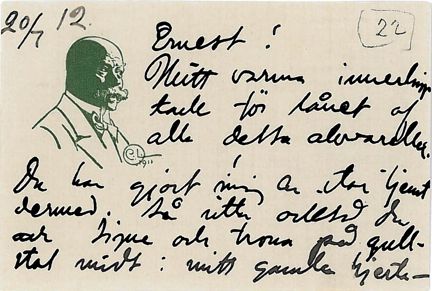 20/7 12.
22
Ernest!
Mitt varma innerliga
tack för lånet af
alla detta akvareller.
C.L.
1911
Du har gjort mig en stor tjenst
dermed. Så sitta Du
och Signe och trona på gull-
stol midt i mitt gamla hjerta-